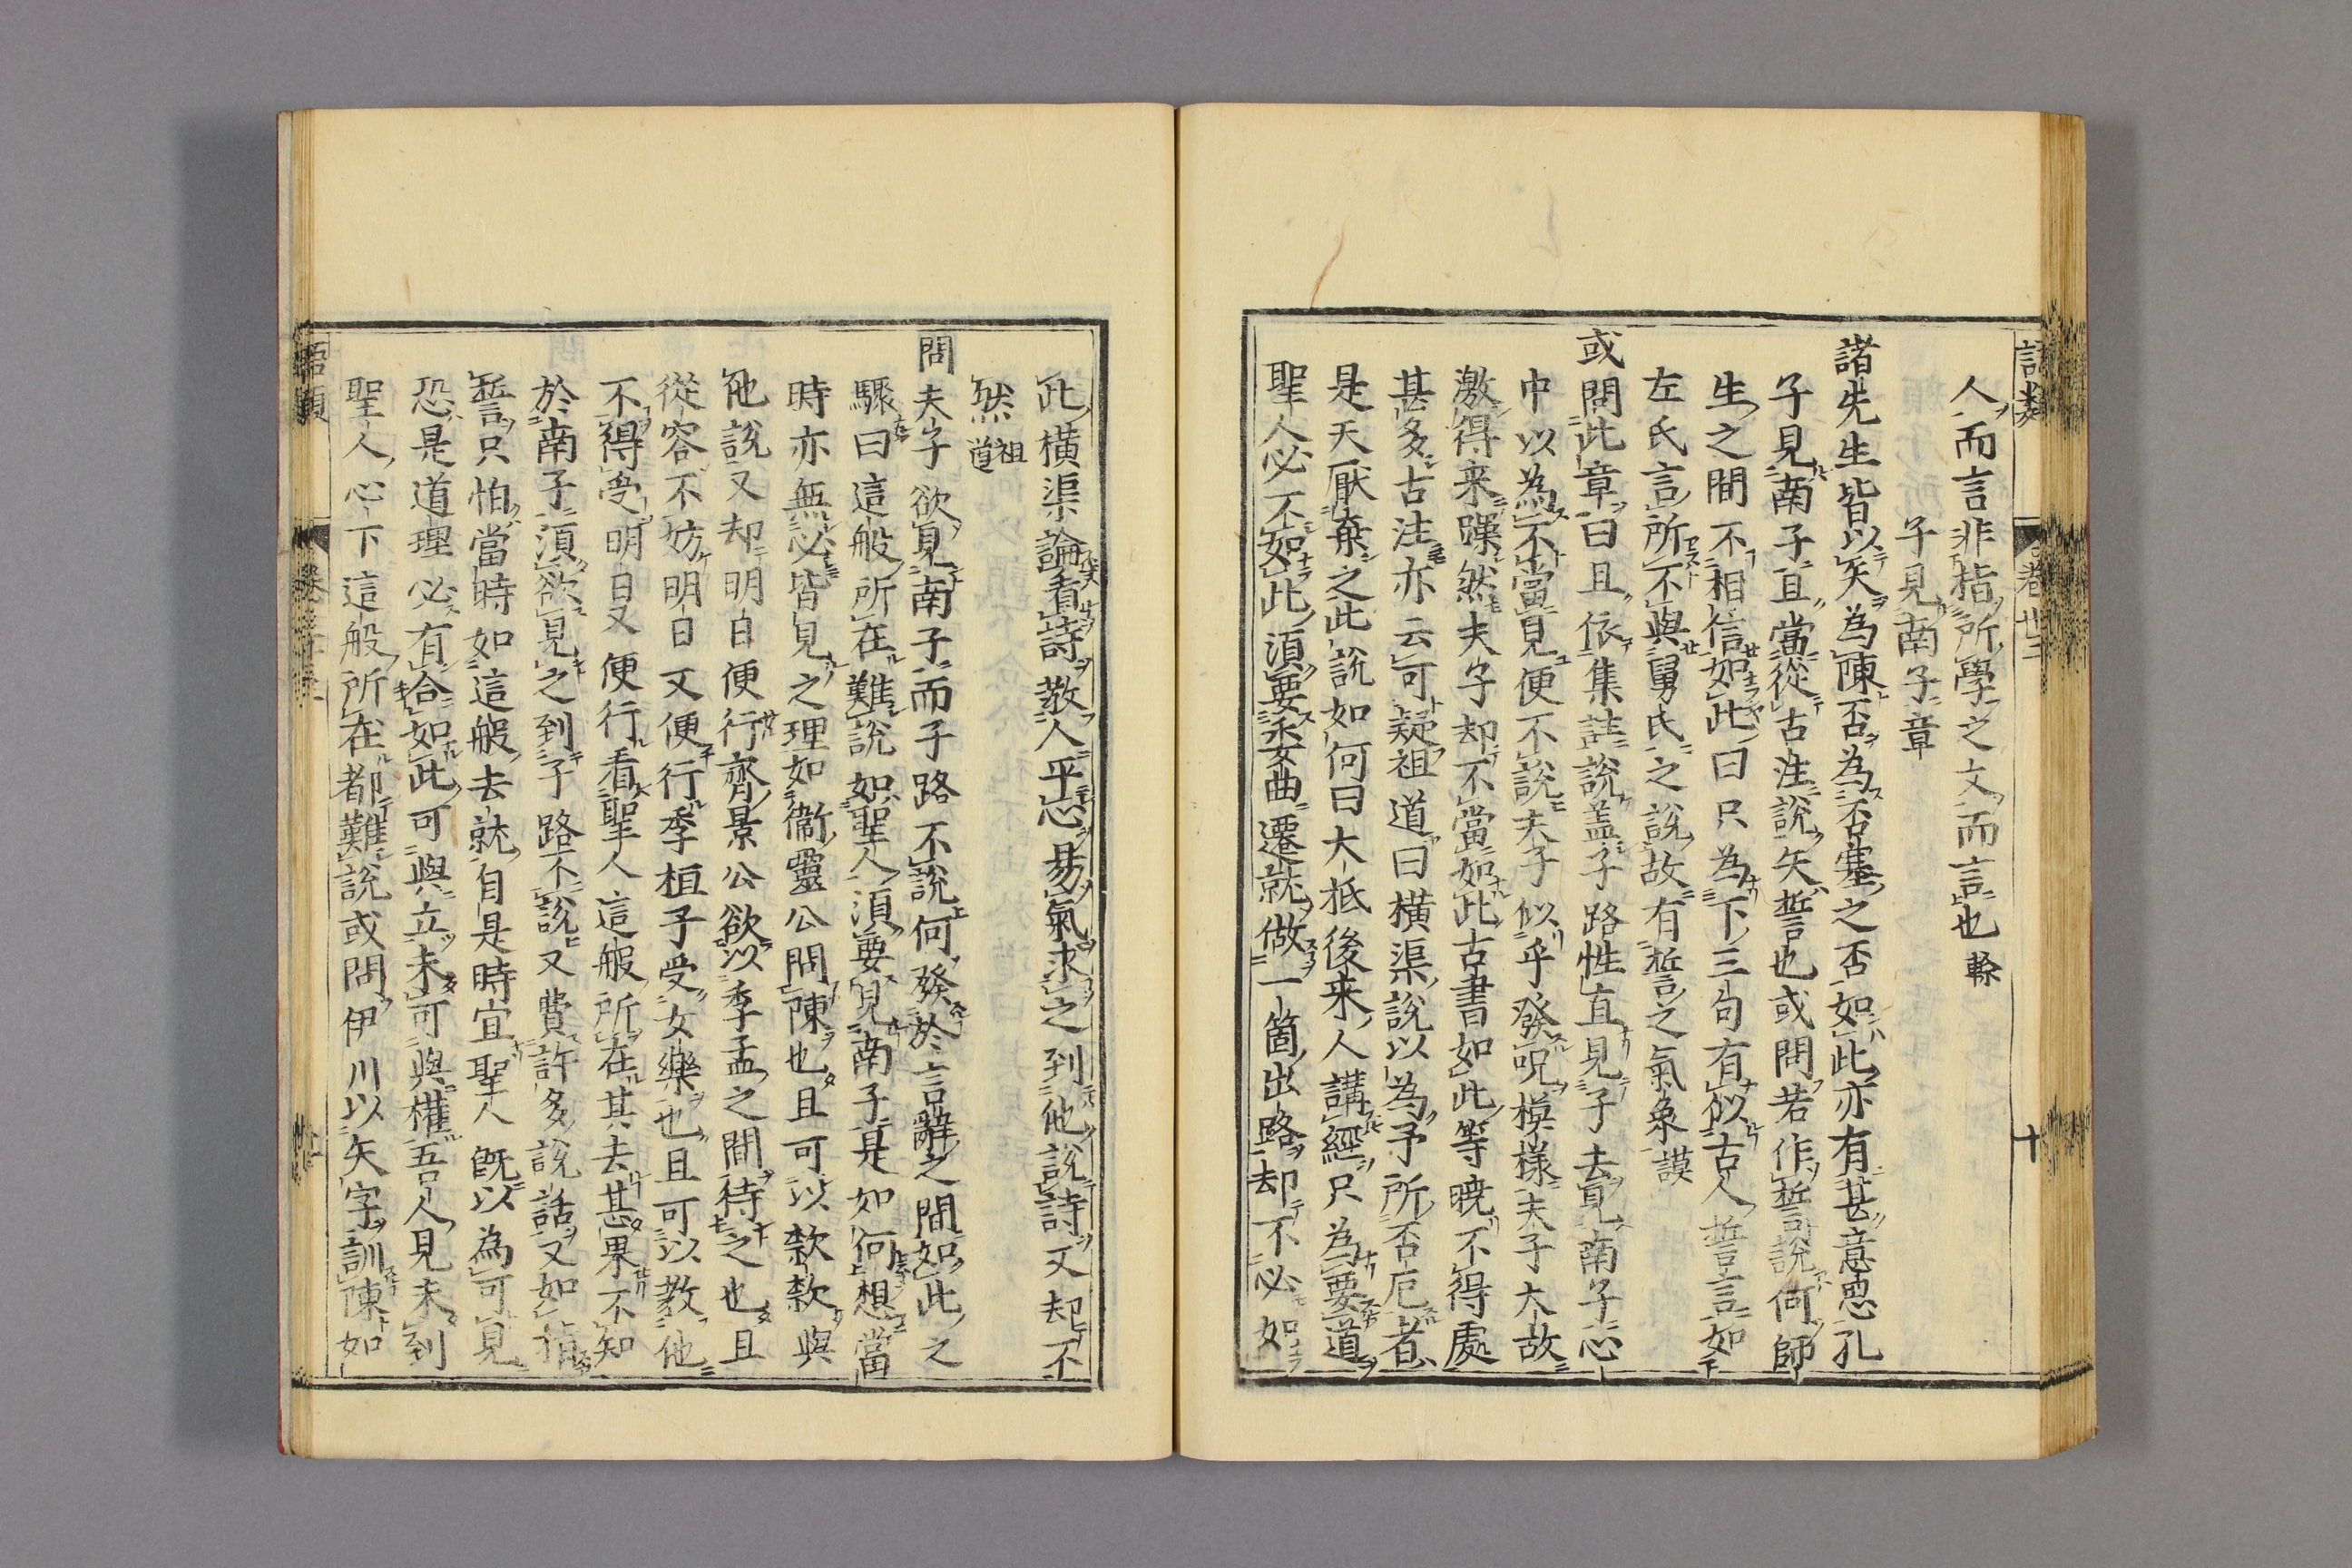 語類
卷卅三
十
人而言非指所學之文而言也榦
子見南子章
諸先生皆以矢為陳否為否塞之否如此亦有甚意思孔
子見南子且當從古注說矢誓也或問若作誓說何師
生之間不相信如此曰只為下三句有似古人誓言如
左氏言所不與舅氏之說故有誓之氣象謨
或問此章曰且依集註說盖子路性直見子去見南子心
中以為不當見便不說夫子似乎發咒模樣夫子大故
激得来躁然夫子却不當如此古書如此等曉不得處
甚多古注亦云可疑祖道曰橫渠說以為予所否厄者
是天厭棄之此說如何曰大抵後来人講經只為要道
聖人必不如此須要委曲遷就做一箇出路却不必如
此橫渠論看詩教人平心易氣求之到他說詩又却不
然祖道
問夫子欲見南子而子路不說何發於言辭之間如此之
驟曰這般所在難說如聖人須要見南子是如何想當
時亦無必皆見之理如衞靈公問陳也且可以欵欵與
他說又却明日便行齊景公欲以季孟之間待之也且
從容不妨明日又便行季桓子受女樂也且可以教他
不得受明日又便行看聖人這般所在其去甚果不知
於南子須欲見之到子路不說又費許多說話又如指
誓只怕當時如這般去就自是時宜聖人既以為可見
恐是道理必有合如此可與立未可與權吾人見未到
聖人心下這般所在都難說或問伊川以矢字訓陳如
語類